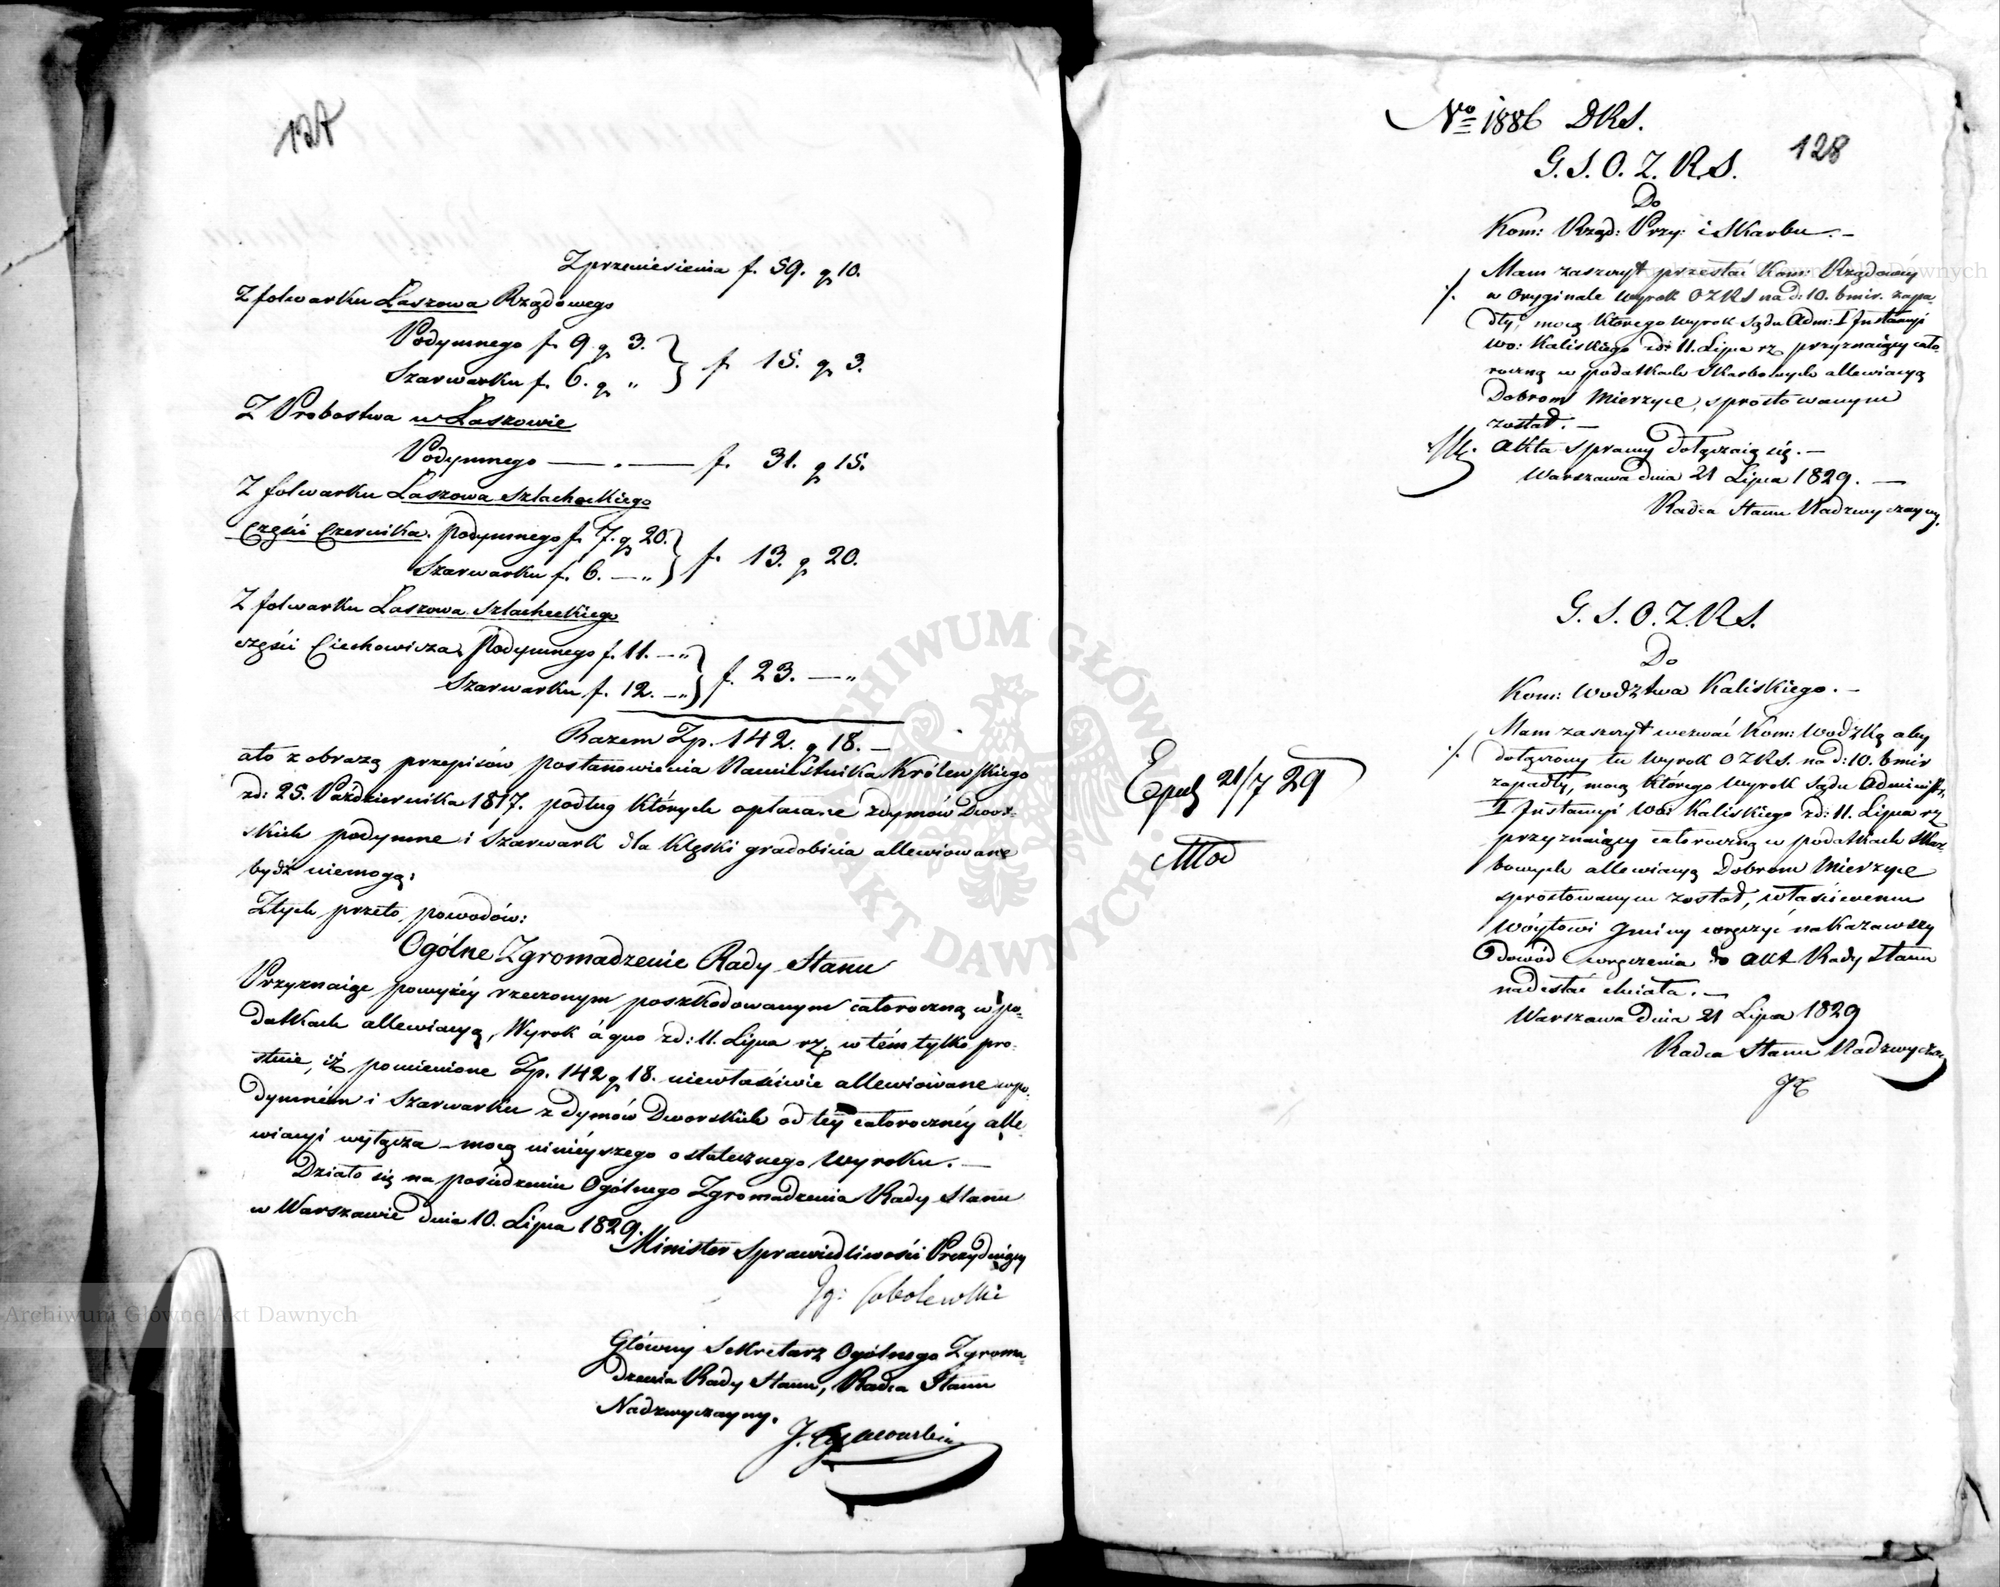 127
Z przeniesienia f. 59. g 10.
Z folwarku Łaszowa Rządowego
Podymnego f. 9 g 3. } f. 15. g 3.
Szarwarku f. 6. g „
Z Probostwa w Łaszowie
Podymnego — . — f. 31. g 15.
Z folwarku Łaszowa Szlacheckiego
Części Czernika. Podymnego f. 7. g 20. } f. 13. g 20.
Szarwarku f. 6. — „
Z folwarku Łaszowa Szlacheckiego
części Ciechowicza Podymnego f. 11. — „ } f. 23. — „
Szarwarku f. 12. — „
Razem Zp. 142. g 18. —
a to z obrazą przepisów postanowienia Namiestnika Królewskiego
z d: 25. Października 1817. podług których opłacane z dymów Dwor-
skich podymne i Szarwark dla klęski gradobicia allewiowane
bydź niemogą:
Z tych przeto powodów:
Ogólne Zgromadzenie Rady Stanu
Przyznaige powyżéy rzeczonym poszkodowanym całoroczną w po-
datkach allewiacyą, Wyrok à quo z d: 11. Lipca rz. w tém tylko pro-
stuie, iż pomienione Zp. 142 g 18. niewłaściwie allewiowane w po-
dymném i Szarwarku z dymów Dworskich od téy całorocznéy alle-
wiacyi wyłącza — mocą ninieyszego ostatecznego Wyroku. —
Działo się na posiedzeniu Ogólnego Zgromadzenia Rady Stanu
w Warszawie dnia 10. Lipca 1829.
Minister Sprawiedliwości Prezyduiący
Ig: Sobolewski
Główny Sekretarz Ogólnego Zgroma-
dzenia Rady Stanu, Radca Stanu
Nadzwyczayny.
No 1886 DRS.
128
G. S. O. Z. R. S.
Do
Kom: Rząd: Przy: i Skarbu. —
Mam zaszczyt przesłać Kom: Rządowéy
w Oryginale Wyrok OZRS na d: 10. b mir. zapa-
dły, mocą którego wyrok Sądu Adm: I Instancyi
Wo: Kaliskiego z d: 11. Lipca rz przyznaiący cało-
roczną w podatkach Skarbowych allewiacyą
Dobrom Mierzyce, sprostowanym
został. —
Akta sprawy dołączaią się. —
Warszawa dnia 21 Lipca 1829. —
Radca Stanu Nadzwyczayny.
G. S. O. Z. R. S.
Do
Kom: Wodztwa Kaliskiego. —
Mam zaszczyt wezwać Kom: Wodzką aby
dołączony tu Wyrok OZRS. na d: 10. b mir
zapadły, mocą którego Wyrok Sądu Administr.
I Instancyi Wo: Kaliskiego z d: 11. Lipca rz
przyznaiący całoroczną w podatkach Skar-
bowych allewiacyą Dobrom Mierzyce
sprostowanym został, właściwemu
Wóytowi Gminy wręczyć nakazawszy
Dowód wręczenia do Akt Rady Stanu
nadesłać chciała. —
Warszawa dnia 21 Lipca 1829
Radca Stanu Nadzwycza
Exped 21/7 29
ARCHIWUM GŁÓWNE AKT DAWNYCH
Archiwum Główne Akt Dawnych